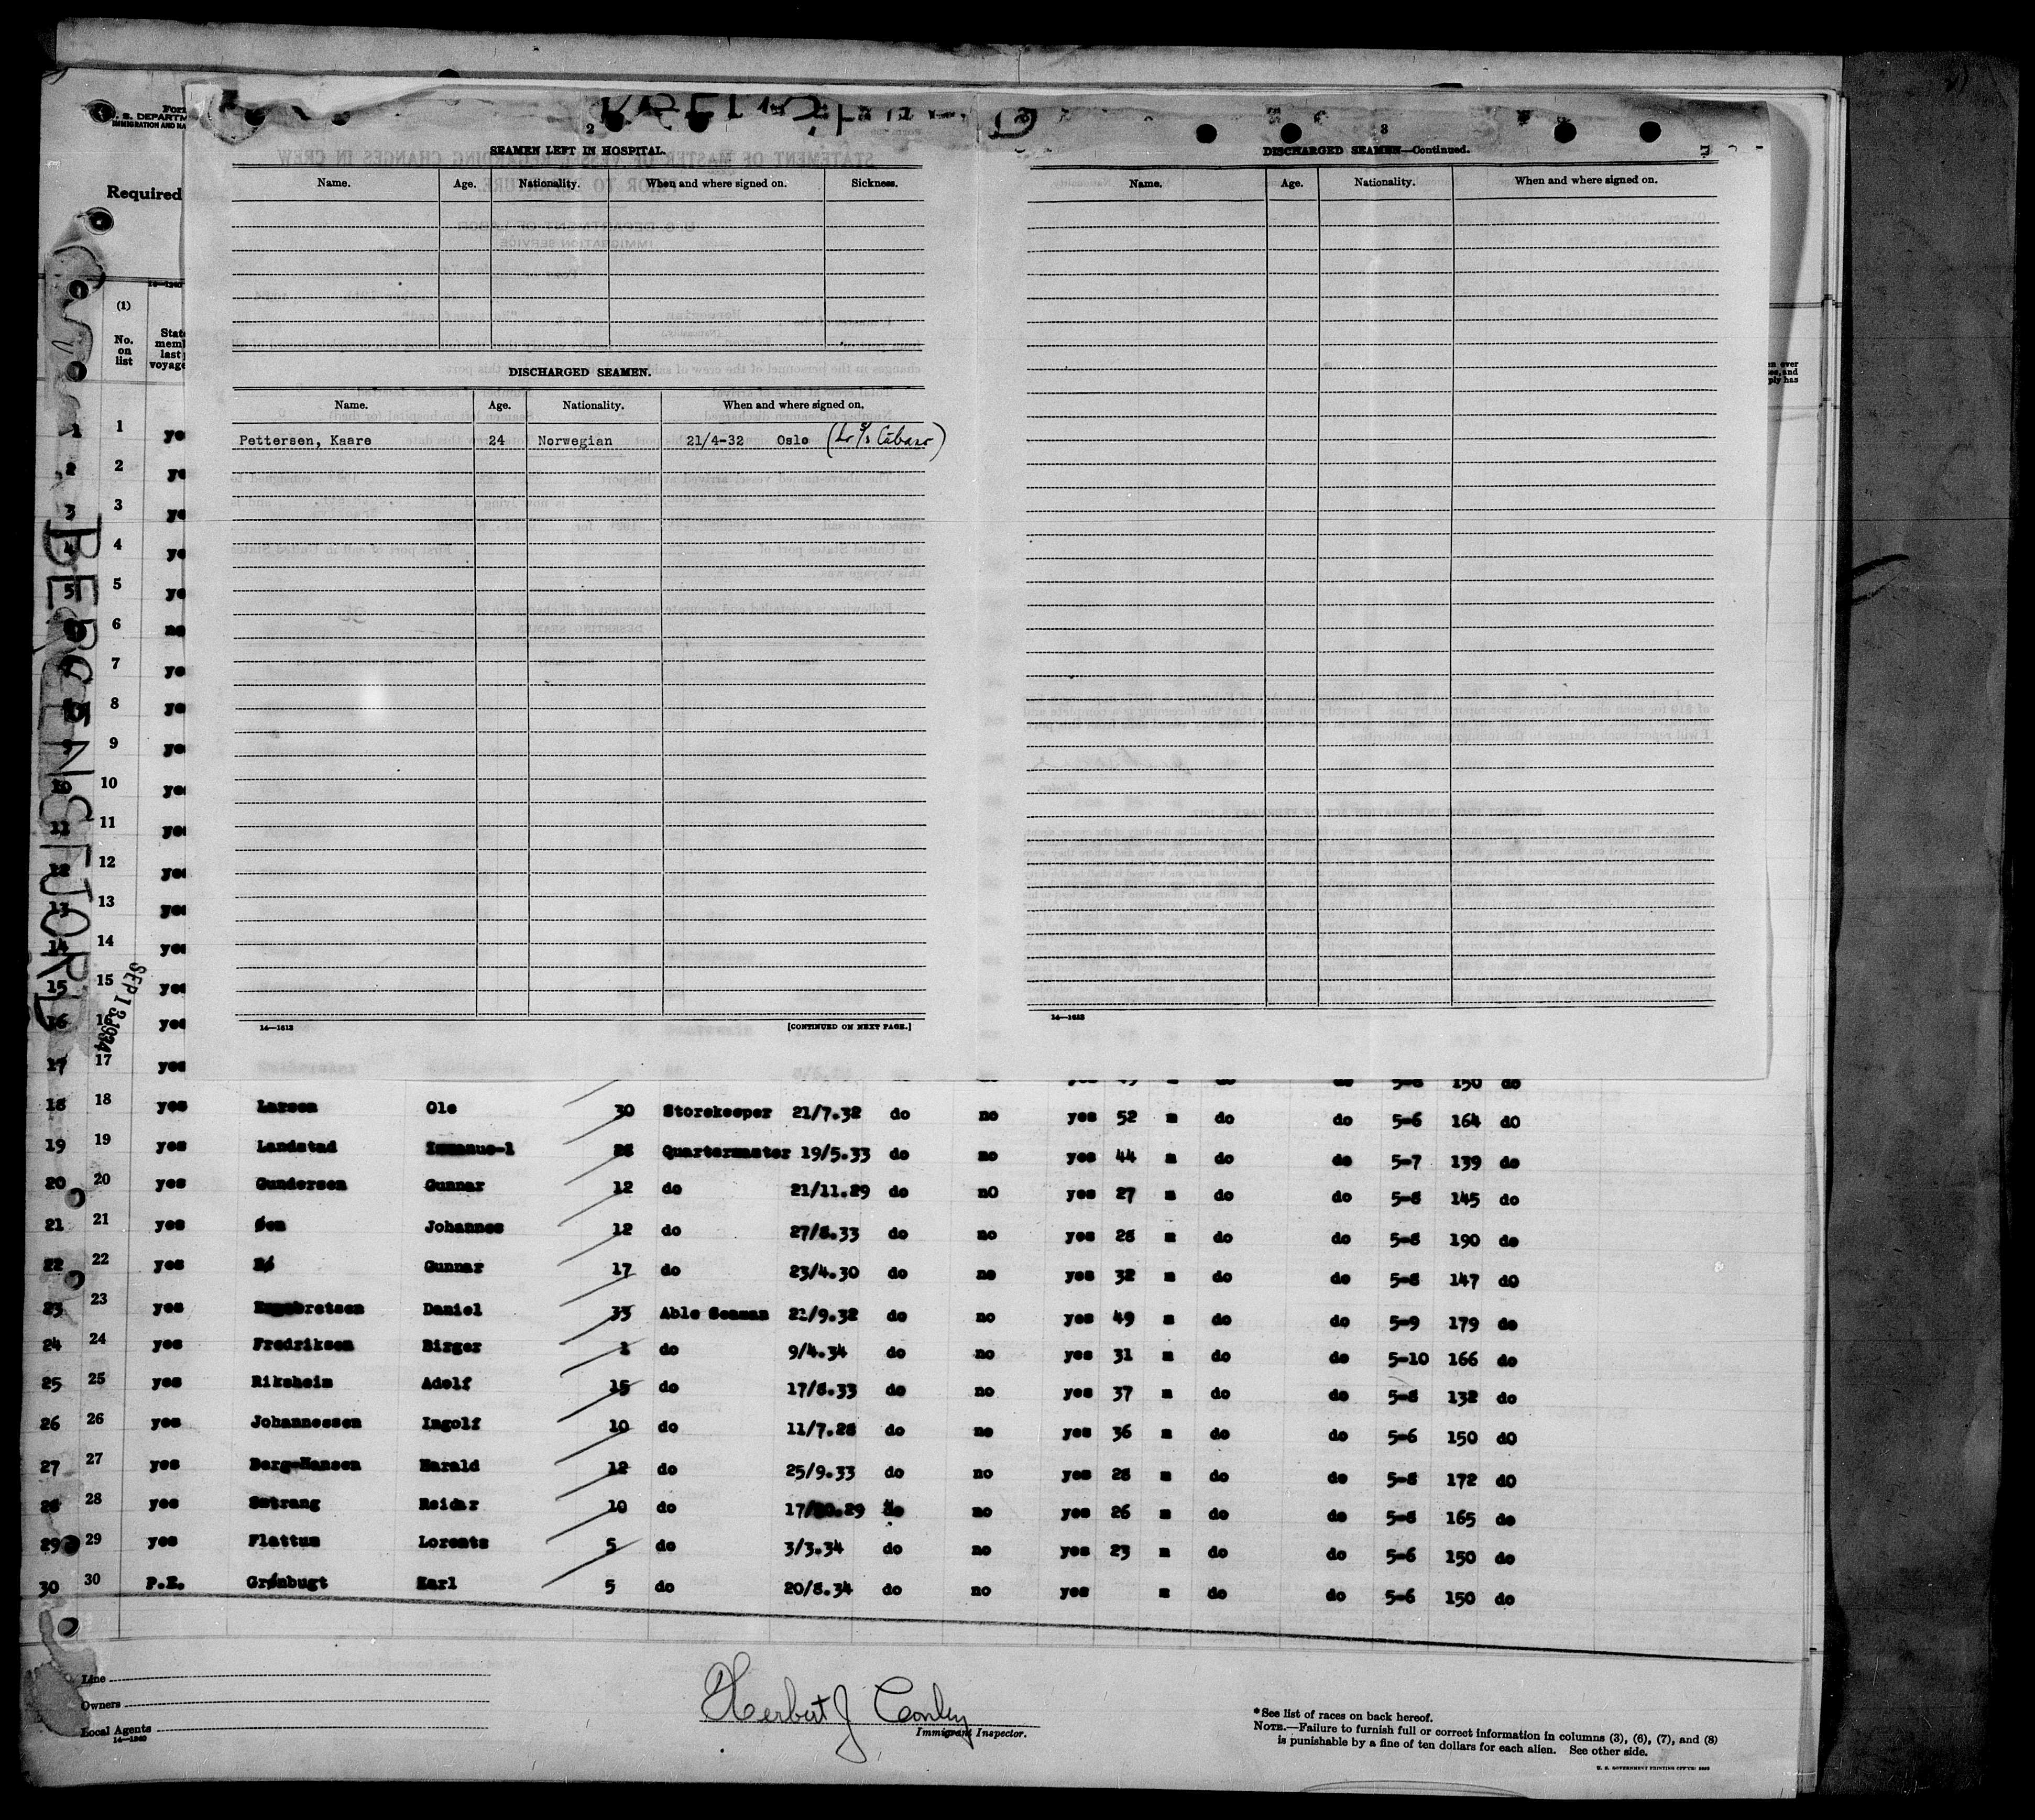 Form
U. S. DEPARTM
IMMIGRATION AND NA
Required
14—1240
(1)
No. on list
State
memb
last
voyage
BERGENSFJORD
SEP 12 1934
2
SEAMEN LEFT IN HOSPITAL.
Name. Age. Nationality. When and where signed on. Sickness.
DISCHARGED SEAMEN.
Name. Age. Nationality. When and where signed on.
Pettersen, Kaare 24 Norwegian 21/4-32 Oslo
14—1613 [CONTINUED ON NEXT PAGE.]
3
DISCHARGED SEAMEN—Continued.
Name. Age. Nationality. When and where signed on.
14—1613
1 1 ye
2 2 ye
3 3 ye
4 4 ye
5 5 ye
6 6 no
7 7 ye
8 8 ye
9 9 ye
10 10 ye
11 11 ye
12 12 ye
13 13 ye
14 14 ye
15 15 ye
16 16 yes
17 17 yes 5-8 150 do
18 18 yes Larsen Ole 30 Storekeeper 21/7.32 do no yes 52 m do do 5-6 164 dO
19 19 yes Landstad 28 Quartermaster 19/5.33 do no yes 44 m do do 5-7 139 do
20 20 yes Gundersen Gunnar 12 do 21/11.29 do nO yes 27 m do do 5-8 145 do
21 21 yes Øen Johannes 12 do 27/8.33 do no yes 28 m do do 5-8 190 do
22 22 yes Gunnar 17 do 23/4.30 do no yes 32 m do do 5-8 147 dO
23 23 yes Daniel 33 Able Seaman 21/9.32 do no yes 49 m do do 5-9 179 do
24 24 yes Fredriksen Birger 1 do 9/4.34 do no yes 31 m do do 5-10 166 do
25 25 yes Riksheim Adolf 15 do 17/8.33 do no yes 37 m do do 5-8 132 do
26 26 yes Johannessen Ingolf 10 do 11/7.28 do no yes 36 m do do 5-6 150 dO
27 27 yes Berg-Hansen Harald 12 do 25/9.33 do no yes 28 m do do 5-8 172 dO
28 28 yes Reidar 10 do do no yes 26 m do do 5-8 165 do
29 29 yes Flattum Lorents 5 do 3/3.34 do no yes 23 m do do 5-6 150 do
30 30 P.E. Grønbugt Karl 5 do 20/8.34 do no yes m do do 5-6 150 do
Line
Owners
Local Agents
14—1240
Herbert J Conley
Immigrant Inspector.
*See list of races on back hereof.
NOTE.—Failure to furnish full or correct information in columns (3), (6), (7), and (8)
is punishable by a fine of ten dollars for each alien. See other side.